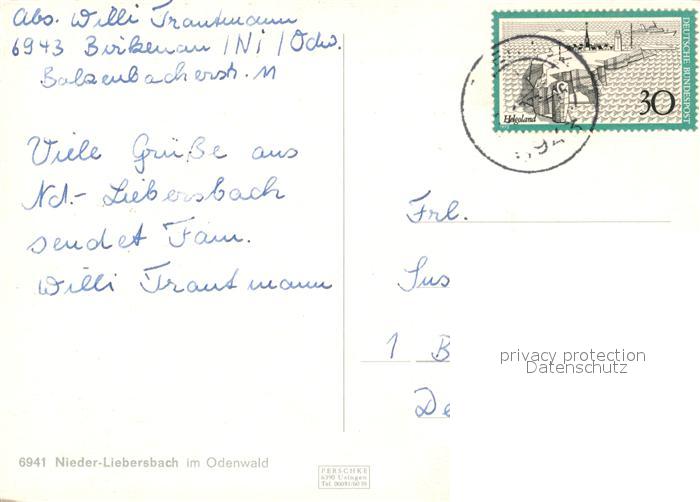 Abs. Willi Trautmann
6943 Birkenau /Ni /Odw.
Balzenbacherstr. 11
Viele Grüße aus
Nd.- Liebersbach
sendet Fam.
Willi Trautmann
DEUTSCHE BUNDESPOST
Helgoland
30
Frl.
Sus
1 B
De
privacy protection
Datenschutz
6941 Nieder-Liebersbach im Odenwald
PERSCHKE
6390 Usingen